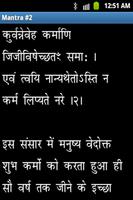 Mantra #2
कुर्वन्नेवेह कर्माणि
जिजीविषेच्छतं समा: ।
एवं त्वयि नान्यथेतोऽस्ति न
कर्म लिप्यते नरे ।२।
इस संसार में मनुष्य वेदोक्त
शुभ कर्मो को करता हुआ ही
सौ वर्ष तक जीने के इच्छा